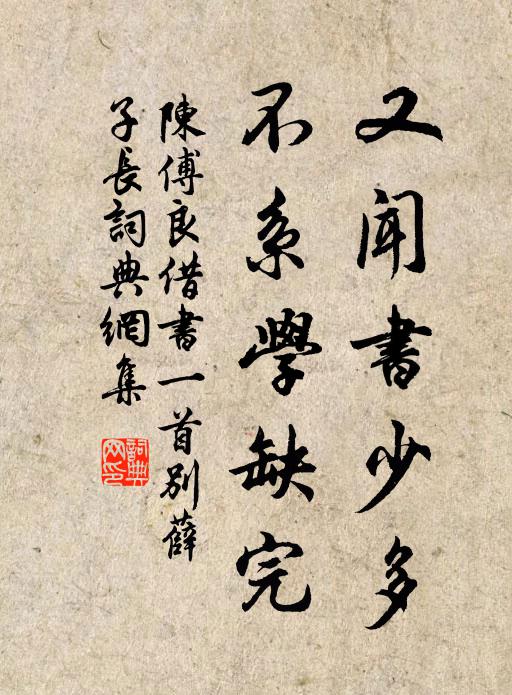 又闻書少多
不系學缺完
陳傅良借書一首别薛
子長詞典網集
詞典网印